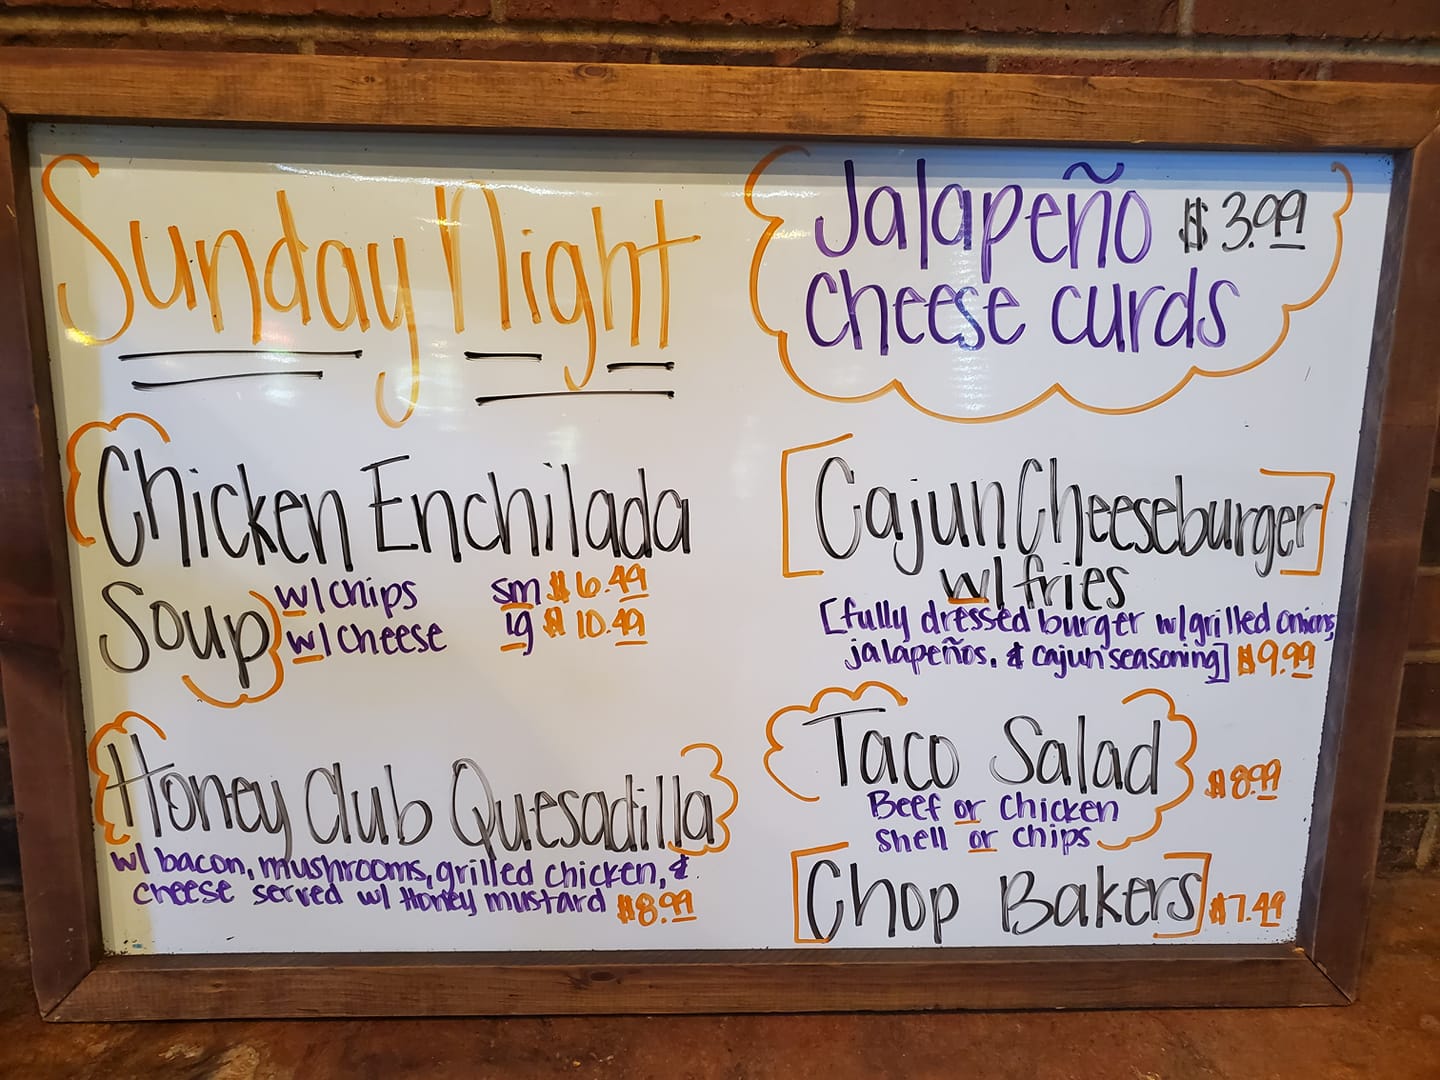 Sunday Night
Chicken Enchilada
Soup w/ chips sm $6.49
w/ cheese lg $10.49
Honey Club Quesadilla
w/ bacon, mushrooms, grilled chicken, &
cheese served w/ Honey mustard $8.99
Jalapeño $3.99
Cheese curds
Cajun Cheeseburger
w/ fries
[fully dressed burger w/ grilled onions,
jalapeños, & cajun seasoning] $9.99
Taco Salad $8.99
Beef or Chicken
Shell or chips
Chop Bakers $7.49